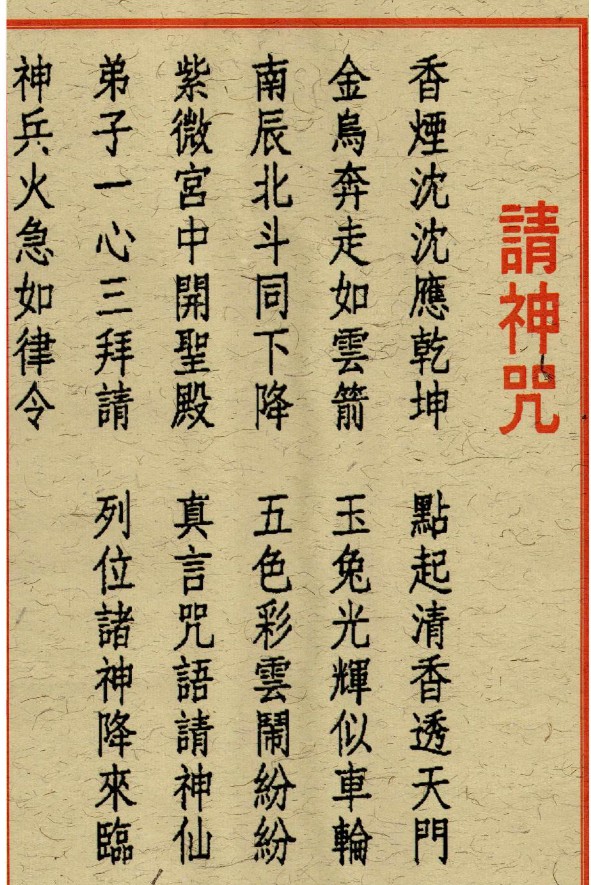 請神咒
香煙沈沈應乾坤　點起清香透天門
金烏奔走如雲箭　玉兔光輝似車輪
南辰北斗同下降　五色彩雲鬧紛紛
紫微宮中開聖殿　真言咒語請神仙
弟子一心三拜請　列位諸神降來臨
神兵火急如律令